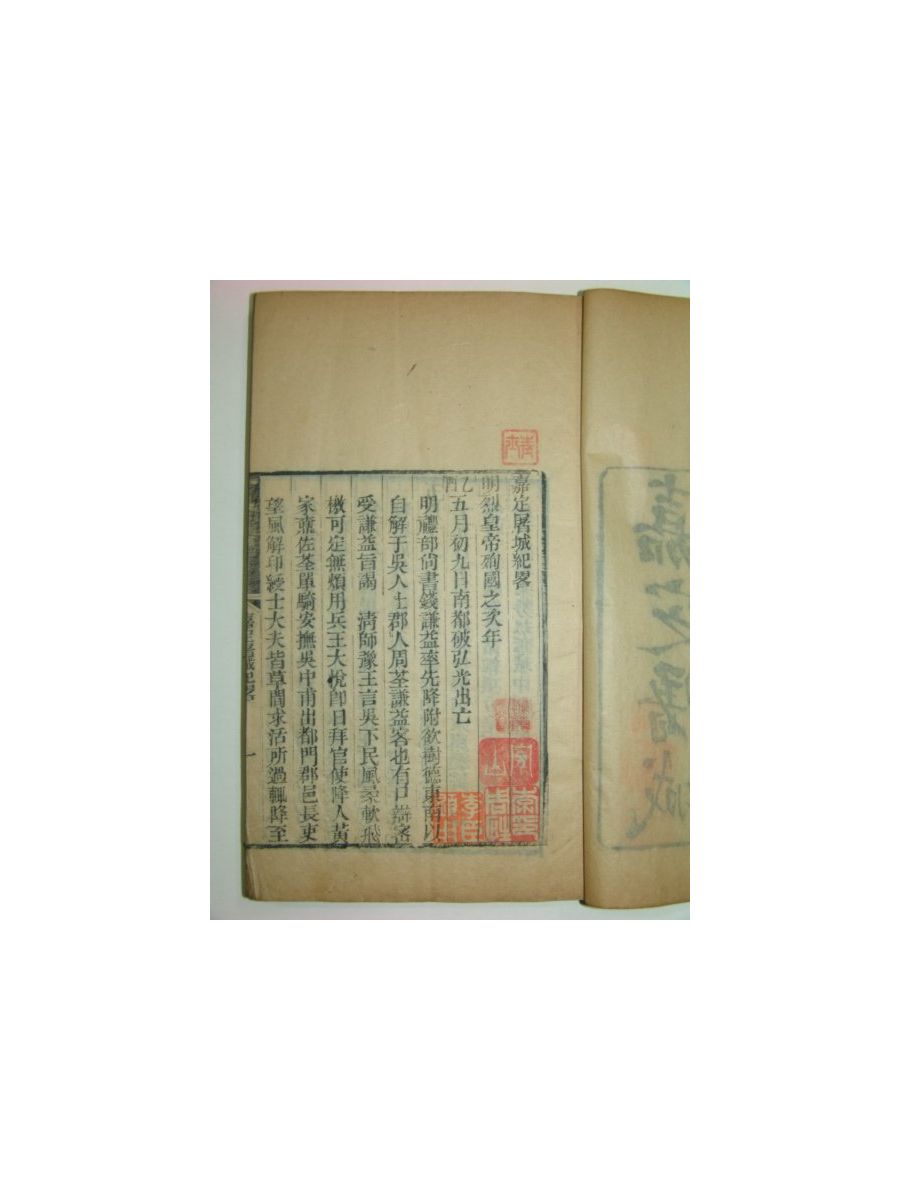 嘉定屠城紀畧
明烈皇帝殉國之次年
乙酉五月初九日南都破弘光出亡
明禮部尙書錢謙益率先降附欲樹德東南以
自解于吳人士郡人周荃謙益客也有口辯客
受謙益旨謁 淸師豫王言吳下民風柔軟飛
檄可定無煩用兵王大悅卽日拜官使降人黃
家鼒佐荃單騎安撫吳中甫出都門郡邑長吏
望風解印綬士大夫皆草間求活所過輒降至
一
嘉定
城